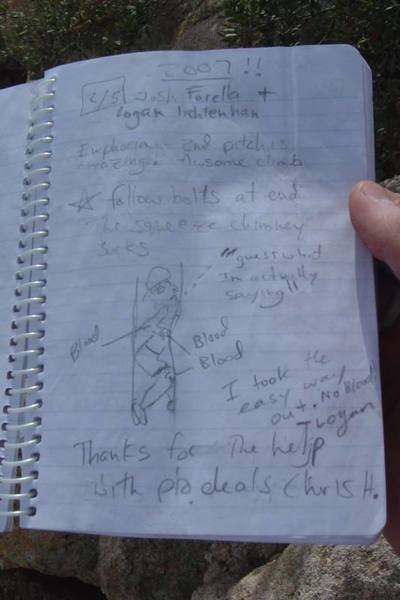 2007!!
2/5 Josh Farella +
Logan
Euphoria - 2nd pitch is
amazing & Awsome climb
☆ follow bolts at end
The squeeze chimney
sucks
"guess what
Im actually
saying"
Blood
Blood
Blood
I took the
easy way
out. No Blood!
Logan
Thanks for The help
with pro deals, Chris H.